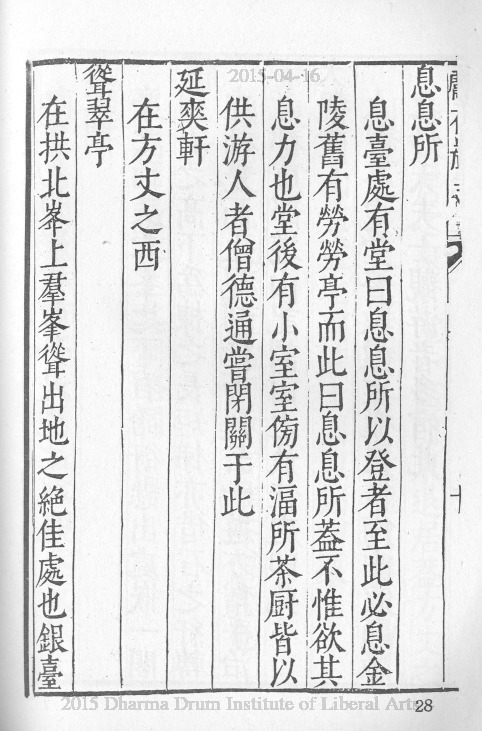 2015-04-16
息息所
息臺處有堂曰息息所以登者至此必息金
陵舊有勞勞亭而此曰息息所葢不惟欲其
息力也堂後有小室室傍有湢所茶厨皆以
供游人者僧德通嘗閉關于此
延爽軒
在方丈之西
聳翠亭
在拱北峯上羣峯聳出地之絶佳處也銀臺
2015 Dharma Drum Institute of Liberal Arts
28